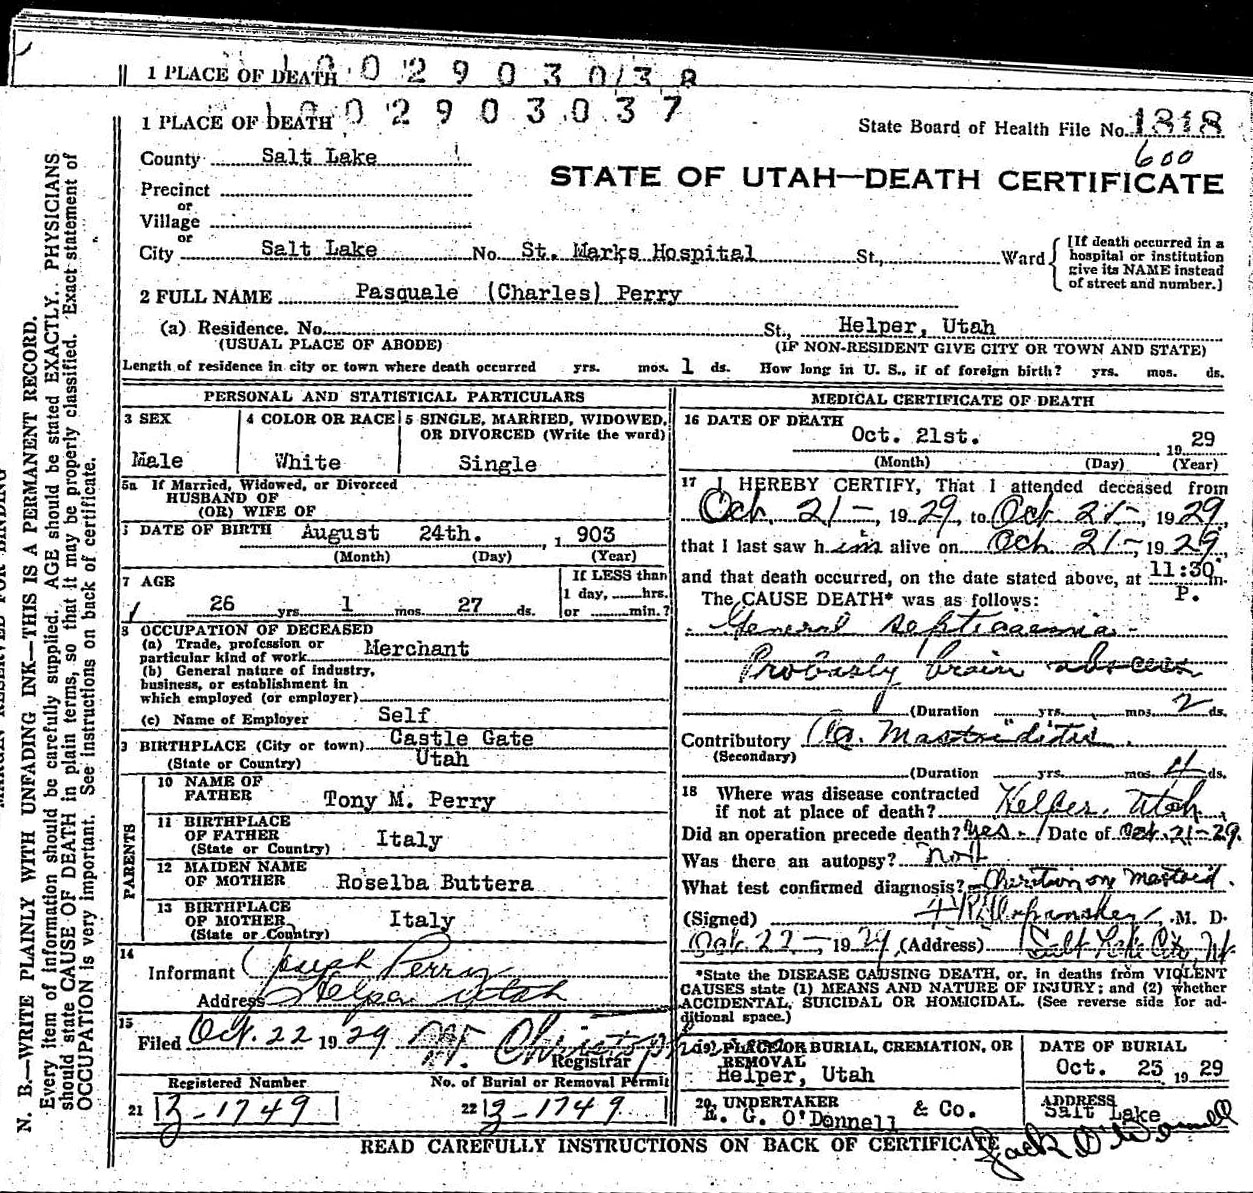 1 PLACE OF DEATH 1 0 0 2 9 0 3 0 3 8
1 PLACE OF DEATH 1 0 0 2 9 0 3 0 3 7
State Board of Health File No. 1818
600
County Salt Lake
STATE OF UTAH—DEATH CERTIFICATE
Precinct
or
Village
or
City Salt Lake No. St. Marks Hospital St., Ward
[If death occurred in a
hospital or institution
give its NAME instead
of street and number.]
2 FULL NAME Pasquale (Charles) Perry
(a) Residence. No. St., Helper, Utah
(USUAL PLACE OF ABODE) (IF NON-RESIDENT GIVE CITY OR TOWN AND STATE)
Length of residence in city or town where death occurred yrs. mos. 1 ds. How long in U. S., if of foreign birth? yrs. mos. ds.
PERSONAL AND STATISTICAL PARTICULARS
3 SEX
Male
4 COLOR OR RACE
White
5 SINGLE, MARRIED, WIDOWED,
OR DIVORCED (Write the word)
Single
5a If Married, Widowed, or Divorced
HUSBAND OF
(OR) WIFE OF
DATE OF BIRTH August 24th. , 1 903
(Month) (Day) (Year)
7 AGE
26 yrs. 1 mos. 27 ds.
If LESS than
1 day, hrs.
or min.?
8 OCCUPATION OF DECEASED
(a) Trade, profession or
particular kind of work Merchant
(b) General nature of industry,
business, or establishment in
which employed (or employer)
(c) Name of Employer Self
BIRTHPLACE (City or town) Castle Gate
(State or Country) Utah
PARENTS
10 NAME OF
FATHER Tony M. Perry
11 BIRTHPLACE
OF FATHER Italy
(State or Country)
12 MAIDEN NAME
OF MOTHER Roselba Buttera
13 BIRTHPLACE
OF MOTHER Italy
(State or Country)
14
Informant Joseph Perry
Address Helper Utah
15
Filed Oct. 22 1929 W. Christopherson
Registrar
Registered Number No. of Burial or Removal Permit
21 3-1749 22 3-1749
MEDICAL CERTIFICATE OF DEATH
16 DATE OF DEATH
Oct. 21st. 19 29
(Month) (Day) (Year)
17 I HEREBY CERTIFY, That I attended deceased from
Oct. 21-, 1929, to Oct 21-, 1929,
that I last saw h im alive on Oct 21-, 1929,
and that death occurred, on the date stated above, at 11:30 m.
P.
The CAUSE DEATH* was as follows:
General Septicaemia -
Probably brain abscess
(Duration yrs. mos. 2 ds.
Contributory Mastoiditis
(Secondary)
(Duration yrs. mos. 4 ds.
18 Where was disease contracted
if not at place of death? Helper, Utah
Did an operation precede death? Yes. Date of Oct. 21-29.
Was there an autopsy? not
What test confirmed diagnosis? Operation on Mastoid.
(Signed) M. D.
Oct. 22-, 1929, (Address) Salt Lake City, Ut
*State the DISEASE CAUSING DEATH, or, in deaths from VIOLENT
CAUSES state (1) MEANS AND NATURE OF INJURY; and (2) whether
ACCIDENTAL, SUICIDAL OR HOMICIDAL. (See reverse side for ad-
ditional space.)
19 PLACE OR BURIAL, CREMATION, OR
REMOVAL
Helper, Utah
DATE OF BURIAL
Oct. 25 19 29
20 UNDERTAKER
E. G. O'Donnell & Co.
ADDRESS
Salt Lake
Jack O'Donnell
READ CAREFULLY INSTRUCTIONS ON BACK OF CERTIFICATE
N. B.—WRITE PLAINLY WITH UNFADING INK—THIS IS A PERMANENT RECORD.
Every item of information should be carefully supplied. AGE should be stated EXACTLY. PHYSICIANS
should state CAUSE OF DEATH in plain terms, so that it may be properly classified. Exact statement of
OCCUPATION is very important. See instructions on back of certificate.